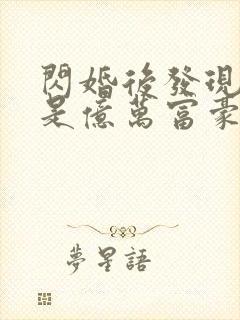 閃婚後發現
是億萬富豪
夢星語